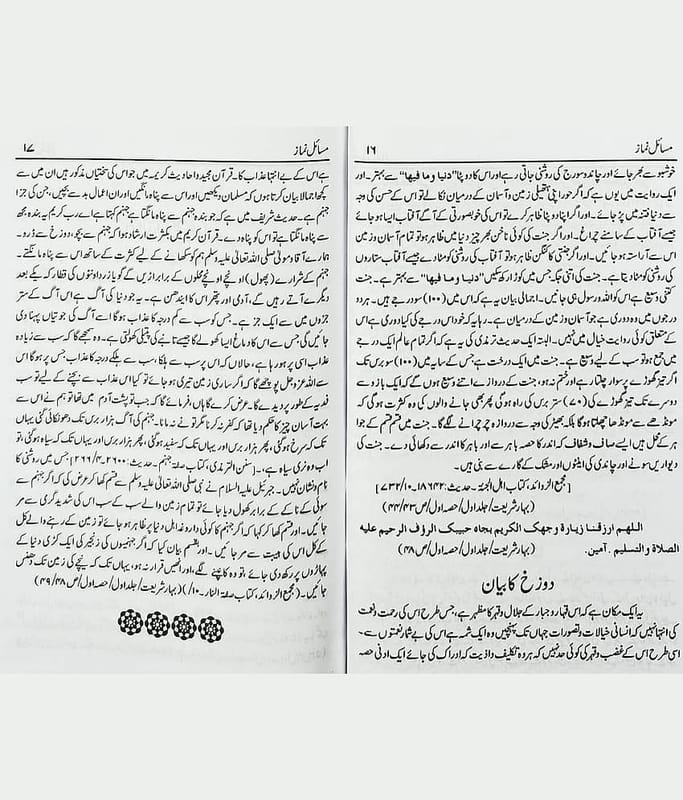 مسائل نماز ۱۶
خوشبو سے بھر جائے اور چاند و سورج کی روشنی جاتی رہے اور اس کا دوپٹا ”دنیا وما فیھا“ سے بہتر۔ اور
ایک روایت میں یوں ہے کہ اگر حور اپنی ہتھیلی زمین و آسمان کے درمیان نکالے تو اس کے حسن کی وجہ
سے دنیا فتنہ میں پڑ جائے۔ اور اگر اپنا دوپٹا ظاہر کرے تو اس کی خوبصورتی کے آگے آفتاب ایسا ہو جائے
جیسے آفتاب کے سامنے چراغ۔ اور اگر جنت کی کوئی ناخن بھر چیز دنیا میں ظاہر ہو تو تمام آسمان و زمین
اس سے آراستہ ہو جائیں۔ اور اگر جنتی کا کنگن ظاہر ہو تو آفتاب کی روشنی کو مٹا دے جیسے آفتاب ستاروں
کی روشنی کو مٹا دیتا ہے۔ جنت کی اتنی جگہ جس میں کوڑا رکھ سکیں ”دنیا وما فیھا“ سے بہتر ہے۔ جنت
کتنی وسیع ہے اس کو اللہ و رسول ہی جانیں۔ اجمالی بیان یہ ہے کہ اس میں (۱۰۰) سو درجے ہیں۔ ہر دو
درجوں میں وہ دوری ہے جو آسمان و زمین کے درمیان ہے۔ رہا یہ کہ خود اس درجے کی کیا دوری ہے اس
کے متعلق کوئی روایت خیال میں نہیں۔ البتہ ایک حدیث ترمذی کی یہ ہے کہ اگر تمام عالم ایک درجے
میں جمع ہو تو سب کے لیے وسیع ہے۔ جنت میں ایک درخت ہے جس کے سایہ میں (۱۰۰) سو برس تک
اگر تیز گھوڑے پر سوار چلتا رہے اور ختم نہ ہو، جنت کے دروازے اتنے وسیع ہوں گے کہ ایک بازو سے
دوسرے تک تیز گھوڑے کی (۷۰) ستر برس کی راہ ہو گی پھر بھی جانے والوں کی وہ کثرت ہو گی کہ
مونڈھے سے مونڈھا چھلتا ہو گا بلکہ بھیڑ کی وجہ سے دروازہ چرچرانے لگے گا۔ جنت میں قسم قسم کے جو
ہر کے محل ہیں ایسے صاف و شفاف کہ اندر کا حصہ باہر سے اور باہر کا اندر سے دکھائی دے۔ جنت کی
دیواریں سونے اور چاندی کی اینٹوں اور مشک کے گارے سے بنی ہیں۔
[مجمع الزوائد، کتاب اہل الجنۃ۔ حدیث: ۱۸۶۴۲۔ ۱۰/۷۳۲]
(بہار شریعت/ جلد اول/ حصہ اول/ ص ۴۳/۴۴)
اللھم ارزقنا زیارۃ وجھک الکریم بجاہ حبیبک الرؤف الرحیم علیہ
الصلاۃ والتسلیم۔ آمین۔ (بہار شریعت/ جلد اول/ حصہ اول/ ص ۴۸)
دوزخ کا بیان
یہ ایک مکان ہے کہ اس قہار و جبار کے جلال و قہر کا مظہر ہے، جس طرح اس کی رحمت و نعمت
کی انتہا نہیں کہ انسانی خیالات و تصورات جہاں تک پہنچیں وہ ایک شمہ ہے اس کی بے شمار نعمتوں سے۔
اسی طرح اس کے غضب و قہر کی کوئی حد نہیں کہ ہر وہ تکلیف و اذیت کہ ادراک کی جائے ایک ادنیٰ حصہ
مسائل نماز ۱۷
ہے اس کے بے انتہا عذاب کا۔ قرآن مجید و احادیث کریمہ میں جو اس کی سختیاں مذکور ہیں ان میں سے
کچھ اجمالاً بیان کرتا ہوں کہ مسلمان دیکھیں اور اس سے پناہ مانگیں اور ان اعمال بد سے بچیں، جن کی جزا
جہنم ہے۔ حدیث شریف میں ہے کہ جو بندہ جہنم سے پناہ مانگتا ہے جہنم کہتا ہے اے رب کریم یہ بندہ مجھ
سے پناہ مانگتا ہے تو اس کو پناہ دے۔ قرآن کریم میں بکثرت ارشاد ہوا کہ جہنم سے بچو، دوزخ سے ڈرو۔
ہمارے آقا و مولیٰ صلی اللہ تعالیٰ علیہ وسلم ہم کو سکھانے کے لیے کثرت کے ساتھ اس سے پناہ مانگتے۔
جہنم کے شرارے (پھول) اونچے اونچے محلوں کے برابر اڑیں گے گویا زرد اونٹوں کی قطار کہ یکے بعد
دیگرے آتے رہیں گے، آدمی اور پتھر اس کا ایندھن ہے۔ یہ جو دنیا کی آگ ہے اس آگ کے ستر
جزوں میں سے ایک جز ہے۔ جس کو سب سے کم درجہ کا عذاب ہوگا اسے آگ کی جوتیاں پہنا دی
جائیں گی جس سے اس کا دماغ ایسا کھولے گا جیسے تانبے کی پتیلی کھولتی ہے۔ وہ سمجھے گا کہ سب سے زیادہ
عذاب اسی پر ہو رہا ہے، حالاں کہ اس پر سب سے ہلکا۔ سب سے ہلکے درجہ کا عذاب جس پر ہوگا اس
سے اللہ عزوجل پوچھے گا کہ اگر ساری زمین تیری ہو جائے تو کیا اس عذاب سے بچنے کے لیے تو سب
فدیہ کے طور پر دیدے گا۔ عرض کرے گا ہاں، فرمائے گا کہ جب تو پشت آدم میں تھا تو ہم نے اس سے
بہت آسان چیز کا حکم دیا تھا کہ کفر نہ کرنا مگر تو نے نہ مانا۔ جہنم کی آگ ہزار برس تک دھونکائی گئی یہاں
تک کہ سرخ ہو گئی، پھر ہزار برس اور یہاں تک کہ سفید ہو گئی، پھر ہزار برس اور یہاں تک کہ سیاہ ہو گئی، تو
اب وہ نری سیاہ ہے، ۔ (سنن الترمذی، کتاب صفۃ جہنم۔ حدیث: ۲۶۰۰۔ ۴/۲۶۶] جس میں روشنی کا
نام و نشان نہیں۔ جبرئیل علیہ السلام نے نبی صلی اللہ تعالیٰ علیہ وسلم سے قسم کھا کر عرض کی کہ اگر جہنم سے
سوئی کے ناکے کے برابر کھول دیا جائے تو تمام زمین والے سب کے سب اس کی شدید گرمی سے مر
جائیں۔ اور قسم کھا کر کہا کہ اگر جہنم کا کوئی داروغہ اہل دنیا پر ظاہر ہو جائے تو زمین کے رہنے والے کل
کے کل اس کی ہیبت سے مر جائیں۔ اور بقسم بیان کیا کہ اگر جہنمیوں کی زنجیر کی ایک کڑی دنیا کے
پہاڑوں پر رکھ دی جائے، تو وہ کانپنے لگے، اور انھیں قرار نہ ہو، یہاں تک کہ نیچے کی زمین تک دھنس
جائیں۔ (مجمع الزوائد، کتاب صفۃ النار۔ ۱۰/) (بہار شریعت/ جلد اول/ حصہ اول/ ص ۴۸/۴۹)